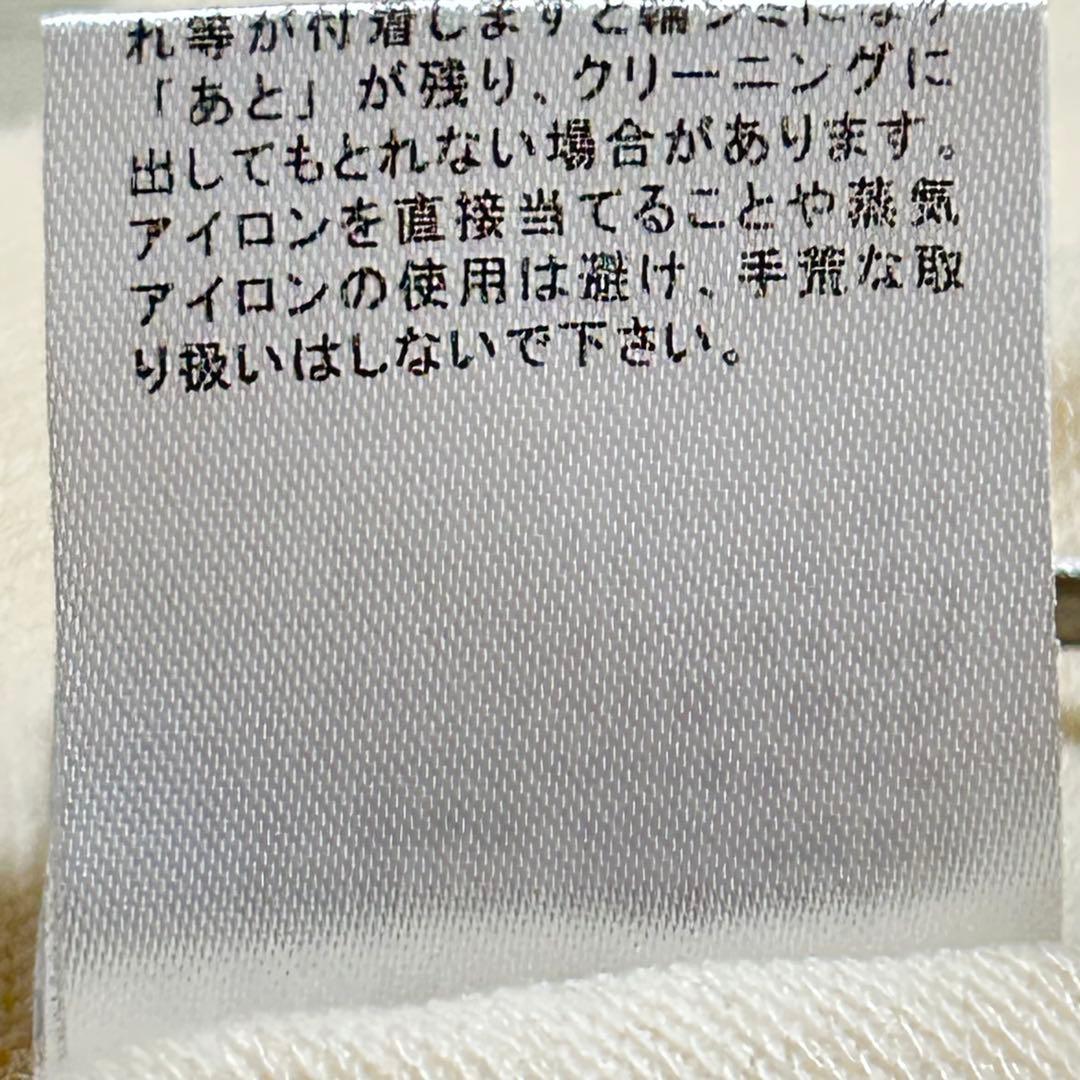 れ等が付着しますと輪ジミになり
「あと」が残り、クリーニングに
出してもとれない場合があります。
アイロンを直接当てることや蒸気
アイロンの使用は避け、手荒な取
り扱いはしないで下さい。